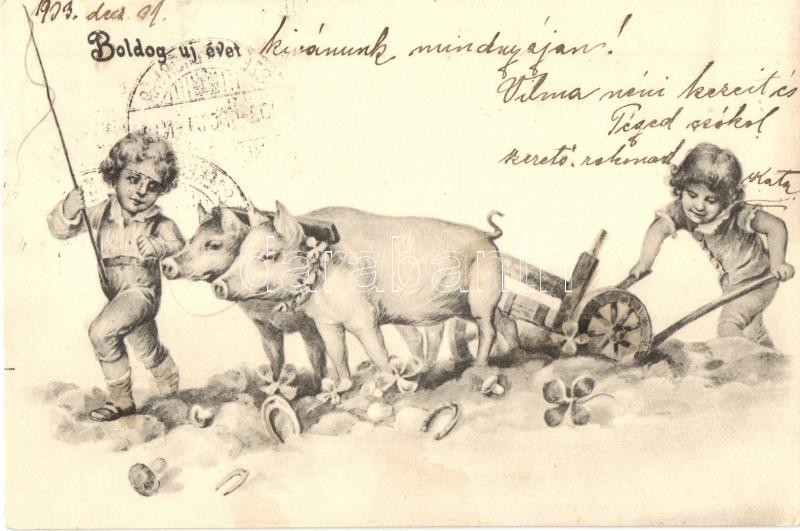 1903. dec. 31.
Boldog uj évet kivánunk mindnyájan!
Vilma néni kezeit és
Téged csókol
szerető rokonod
Kata
darabanth